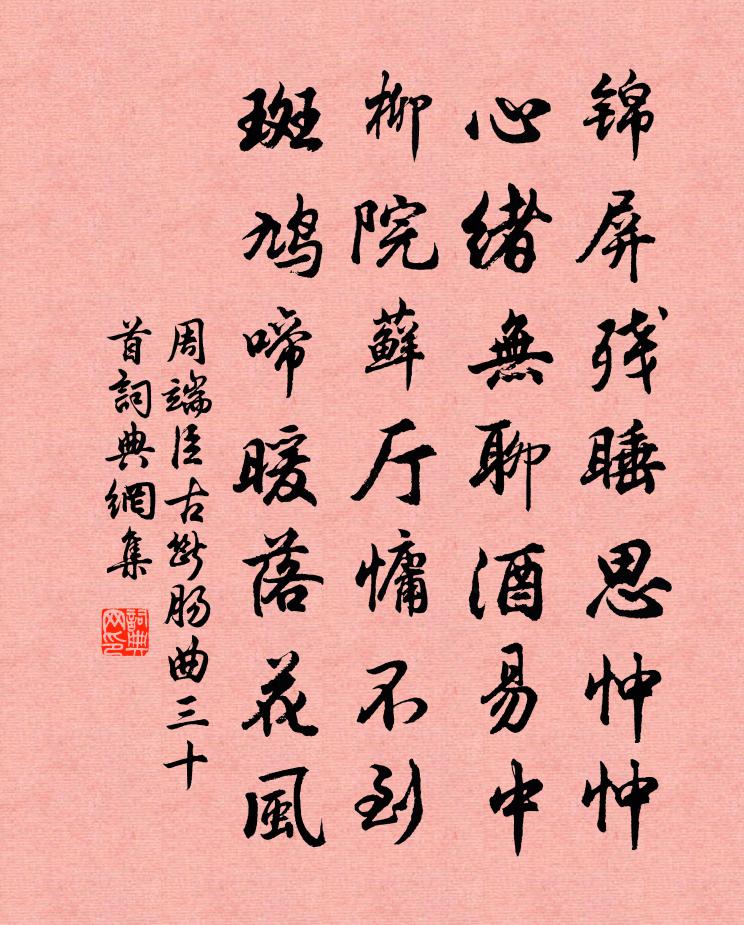 锦屏残睡思忡忡
心绪無聊酒易中
柳院蘚厅慵不到
斑鸠啼暖落花風
周端臣古断肠曲三十
首詞典網集
詞典网印